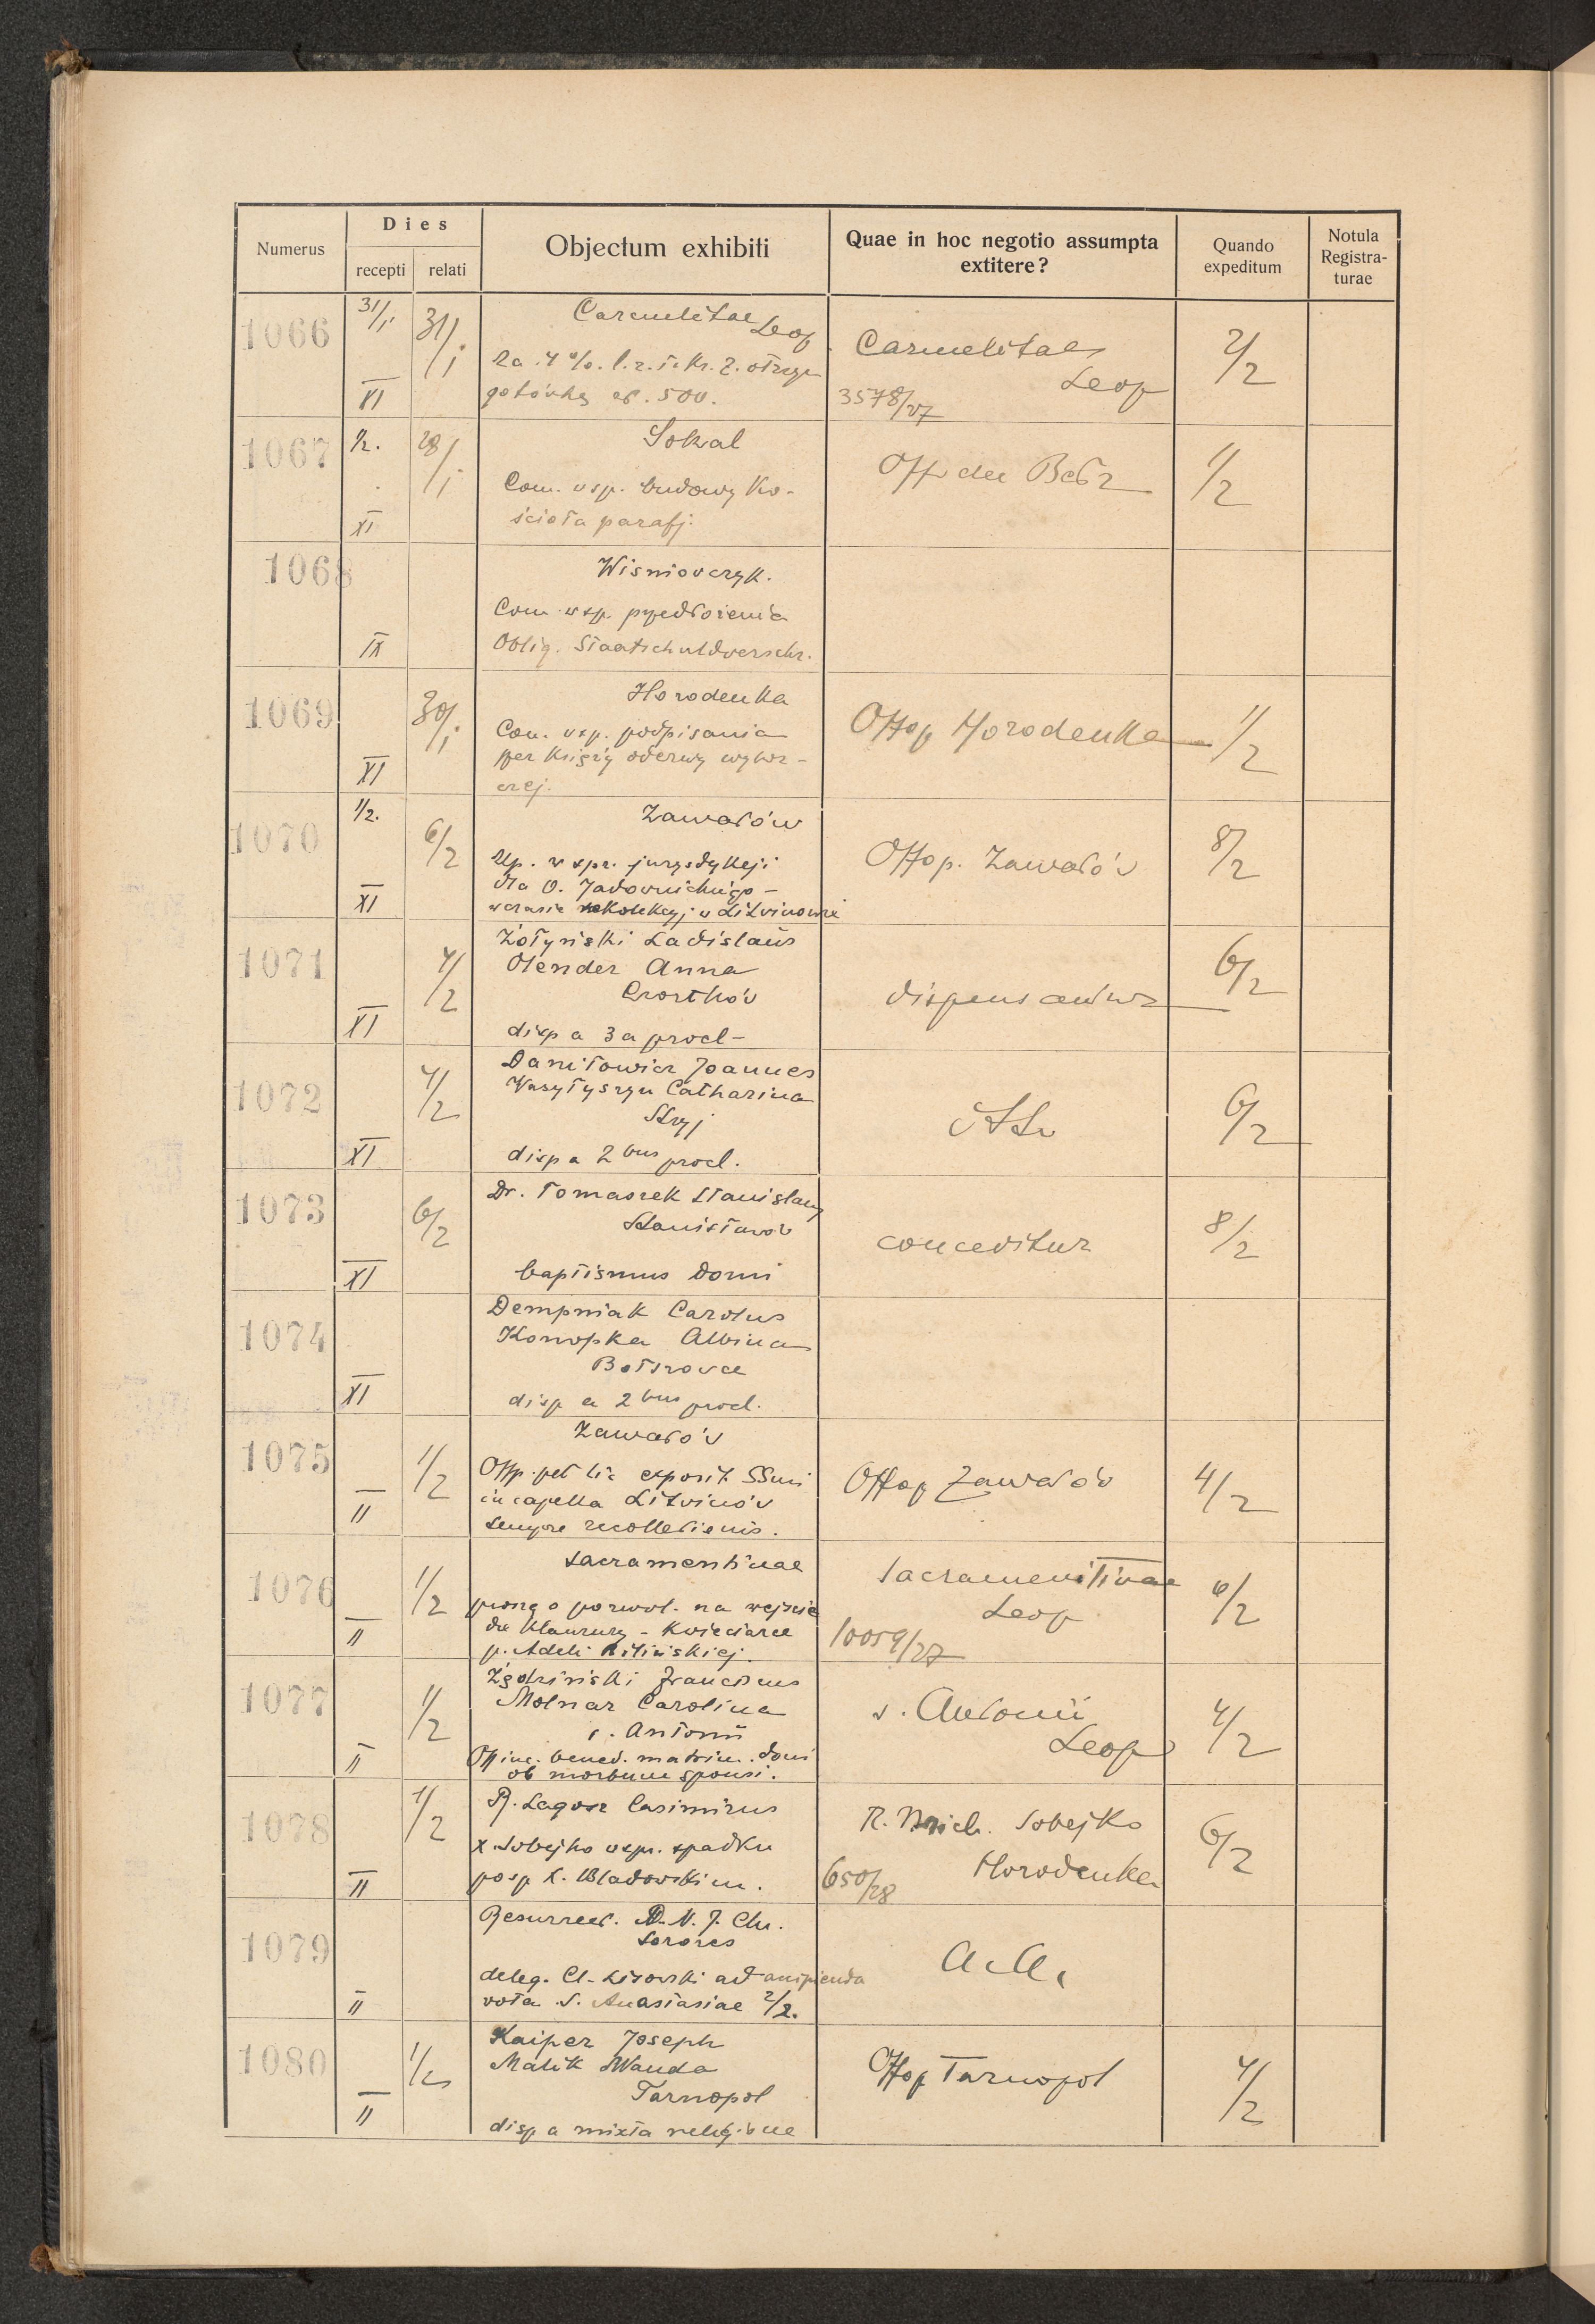 Numerus
Dies
recepti relati
Objectum exhibiti
Quae in hoc negotio assumpta extitere?
Quando expeditum
Notula Registra-turae
1066 31/1 31/1 XI
Carmelitae Leop
za 4%. l.z.T.Kr.Z.
gotówką zł. 500.
Carmelitae
Leop
3578/27
2/2
1067 1/2. 28/1 XI
Sokal
Com. wsp. budowy Ko-
ścioła parafj.
Offo Bełz
1/2
1068 IX
Wisniowczyk.
Com wsp. przedłożenia
Oblig. Staatschuldverschr.
1069 30/1 XI
Horodenka
Com. wsp. podpisania
per Księży odezwy wybor-
czej.
Offop Horodenka
1/2
1070 1/2. 6/2 XI
Zawałów
Up. w spr. jurysdykcji
dla O.
w czasie rekolekcyj w Litwinowie
Offop. Zawałów
8/2
1071 4/2 XI
Żołyński Ladislaus
Olender Anna
Czortków
disp a 3a procl-
dispensantur
6/2
1072 4/2 XI
Daniłowicz Joannes
Wasyłyszyn Catharina
Stryj
disp a 2bus procl.
6/2
1073 6/2 XI
Dr. Tomaszek Stanislaus
Stanisławów
baptismus domi
conceditur
8/2
1074 XI
Dempniak Carolus
Konopka Albina
Bołszowce
disp a 2bus procl.
1075 1/2 II
Zawałów
Offp. pet lic exposit. SSmi
in capella Litwinów
tempore recollectionis.
Offop Zawałów
4/2
1076 1/2 II
Sacramentinae
proszą o pozwol. na wejście
do Klauzury - Kwieciarce
p. Adeli
Sacramentinae
Leop
10059/27
6/2
1077 1/2 II
Franciscus
Molnar Carolina
s. Antonii
Off inc. bened. matrim. domi
ob morbum sponsi.
s. Antonii
Leop
4/2
1078 1/2 II
R. Lagosz Casimirus
x. Sobejko wspr. spadku
po śp X.
R. Mich. Sobejko
Horodenka
650/28
6/2
1079 II
Resurrect. D. N. J. Chr.
Sorores
deleg. Cl. Lisowski ad accipienda
vota S. Anastasiae 2/2.
A.A.
1080 1/2 II
Kaiper Joseph
Malik Wanda
Tarnopol
disp a mixta religione
Offop Tarnopol
4/2